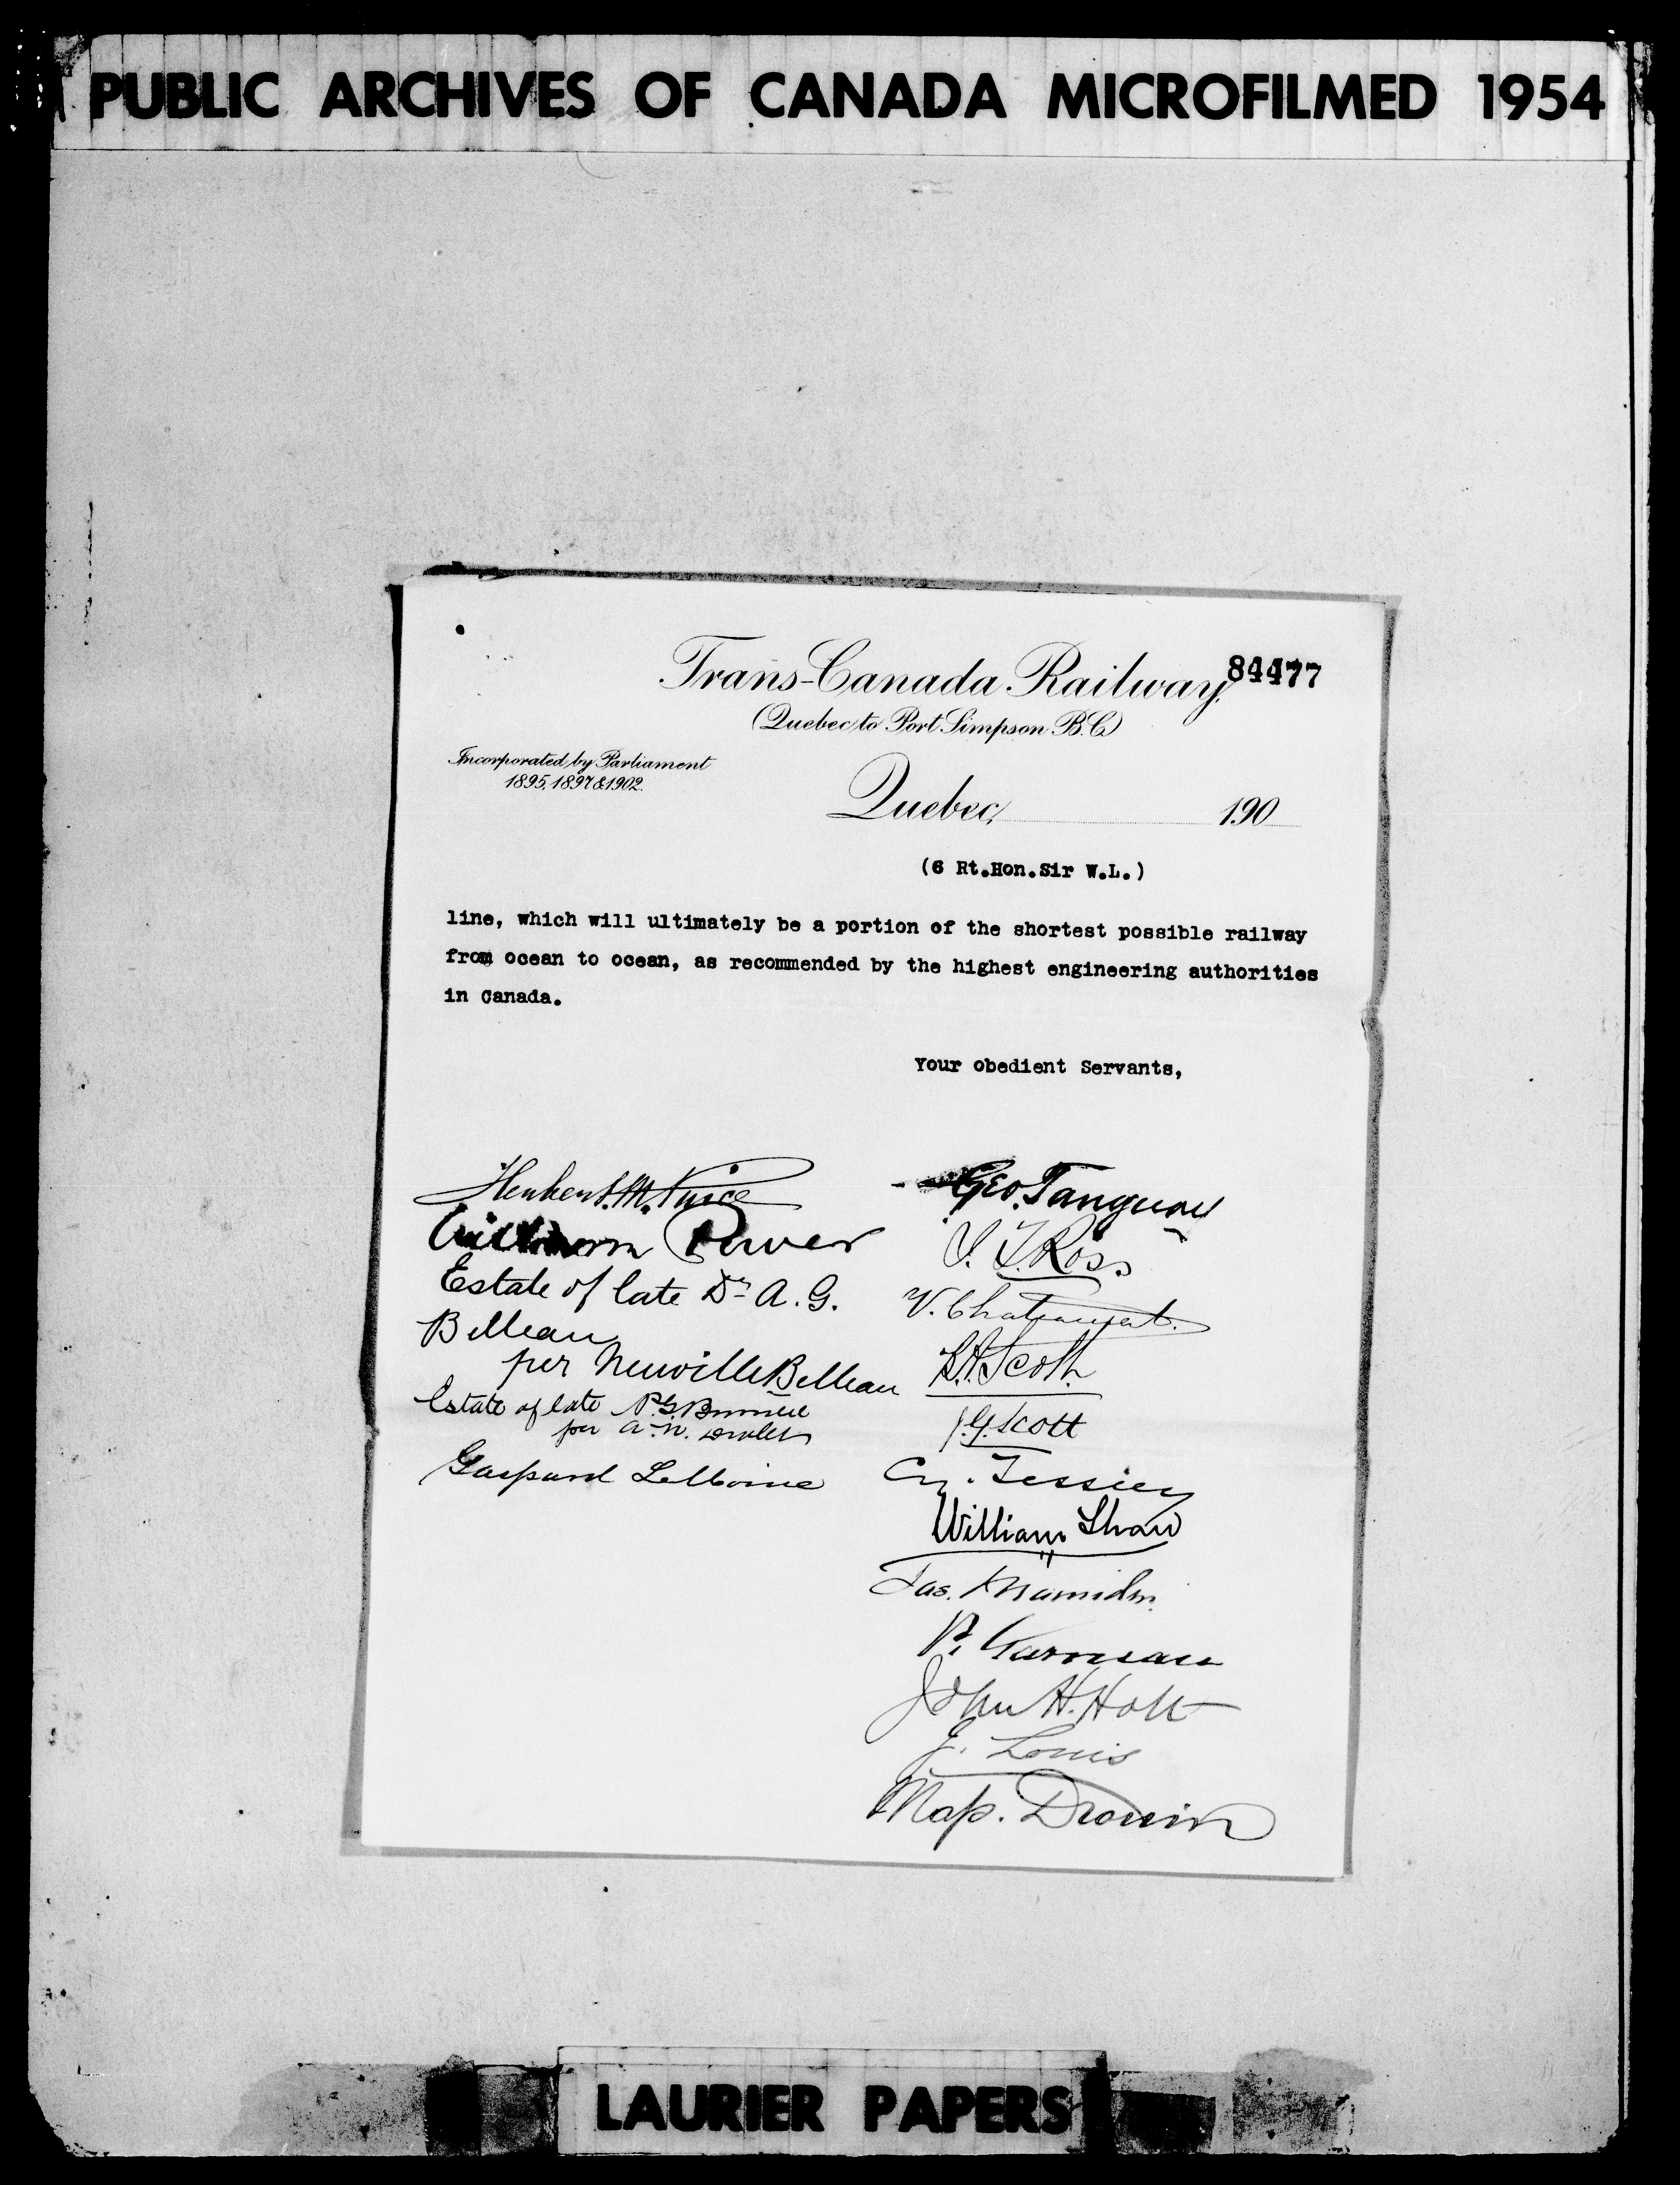 PUBLIC ARCHIVES OF CANADA MICROFILMED 1954
Trans-Canada Railway,
84477
(Quebec to Port Simpson B.C.)
Incorporated by Parliament
1895, 1897 & 1902.
Quebec, 190
(6 Rt.Hon.Sir W.L.)
line, which will ultimately be a portion of the shortest possible railway
from ocean to ocean, as recommended by the highest engineering authorities
in Canada.
Your Obedient Servants,
Herbert M. Price
William Power
Estate of late Dr A. G.
Belleau
per Neuville Belleau
Estate of late P.G.
per A. N.
Gaspard LeMoine
Geo. Tanguay
J. T. Ross
V. Chateauvert
J.G. Scott
Cy. Tessier
William Shaw
Jas.
P. Garneau
John H. Holt
J. Louis
Nap. Drouin
LAURIER PAPERS